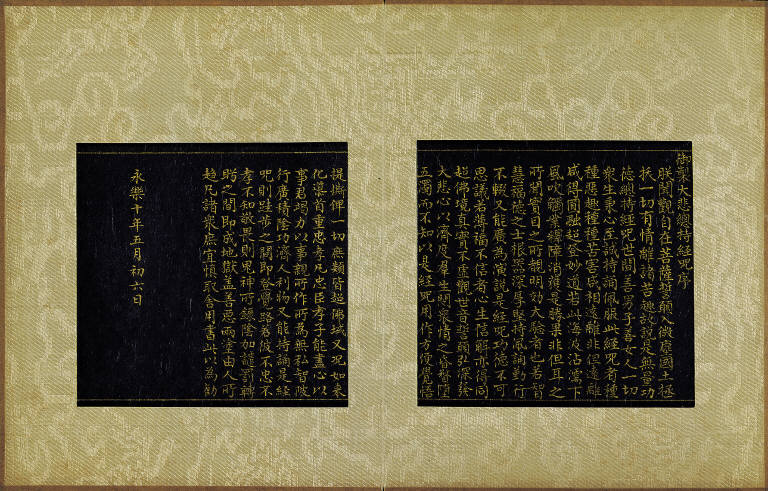 御製大悲總持經呪序
朕聞觀自在菩薩誓願入微塵國土拯
扶一切有情離諸苦趣故說是無量功
德總持經呪世間善男子善女人一切
眾生秉心至誠持誦佩服此經呪者種
種惡趣種種苦害咸相遠離非但遠離
咸得圓融超登妙道若此海波沾濡下
風吹觸業障消獲是勝果非但耳之
所聞實目之所覩明效大驗者也若智
慧福德之士根器深厚堅持佩誦勤行
不輟又能廣為演說是經呪功德不可
思議若薄福不信者心生信解亦得同
超佛境真實不虛觀世音誓願弘深發
大悲心以濟度羣生憫眾情之昏瞀墮
五濁而不知以是經呪用作方便覺悟
提撕俾一切無類皆超佛域又況如来
化導首重忠孝凡忠臣孝子能盡心以
事君竭力以事親所作所為無私智陂
行廣積陰功濟人利物又能持誦是經
呪則跬步之間即登覺路若彼不忠不
孝不知敬畏則鬼神所錄陰加譴罰轉
眄之間即成地獄蓋善惡兩塗由人所
趨凡諸衆庶宜慎取舍用書此以為勸
永樂十年五月初六日